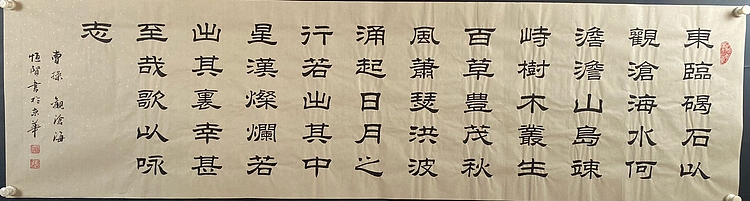 東臨碣石以
觀滄海水何
澹澹山島竦
峙樹木叢生
百草豊茂秋
風蕭瑟洪波
涌起日月之
行若出其中
星漢燦爛若
出其裏幸甚
至哉歌以咏
志
曹操觀滄海
恒智書於京華